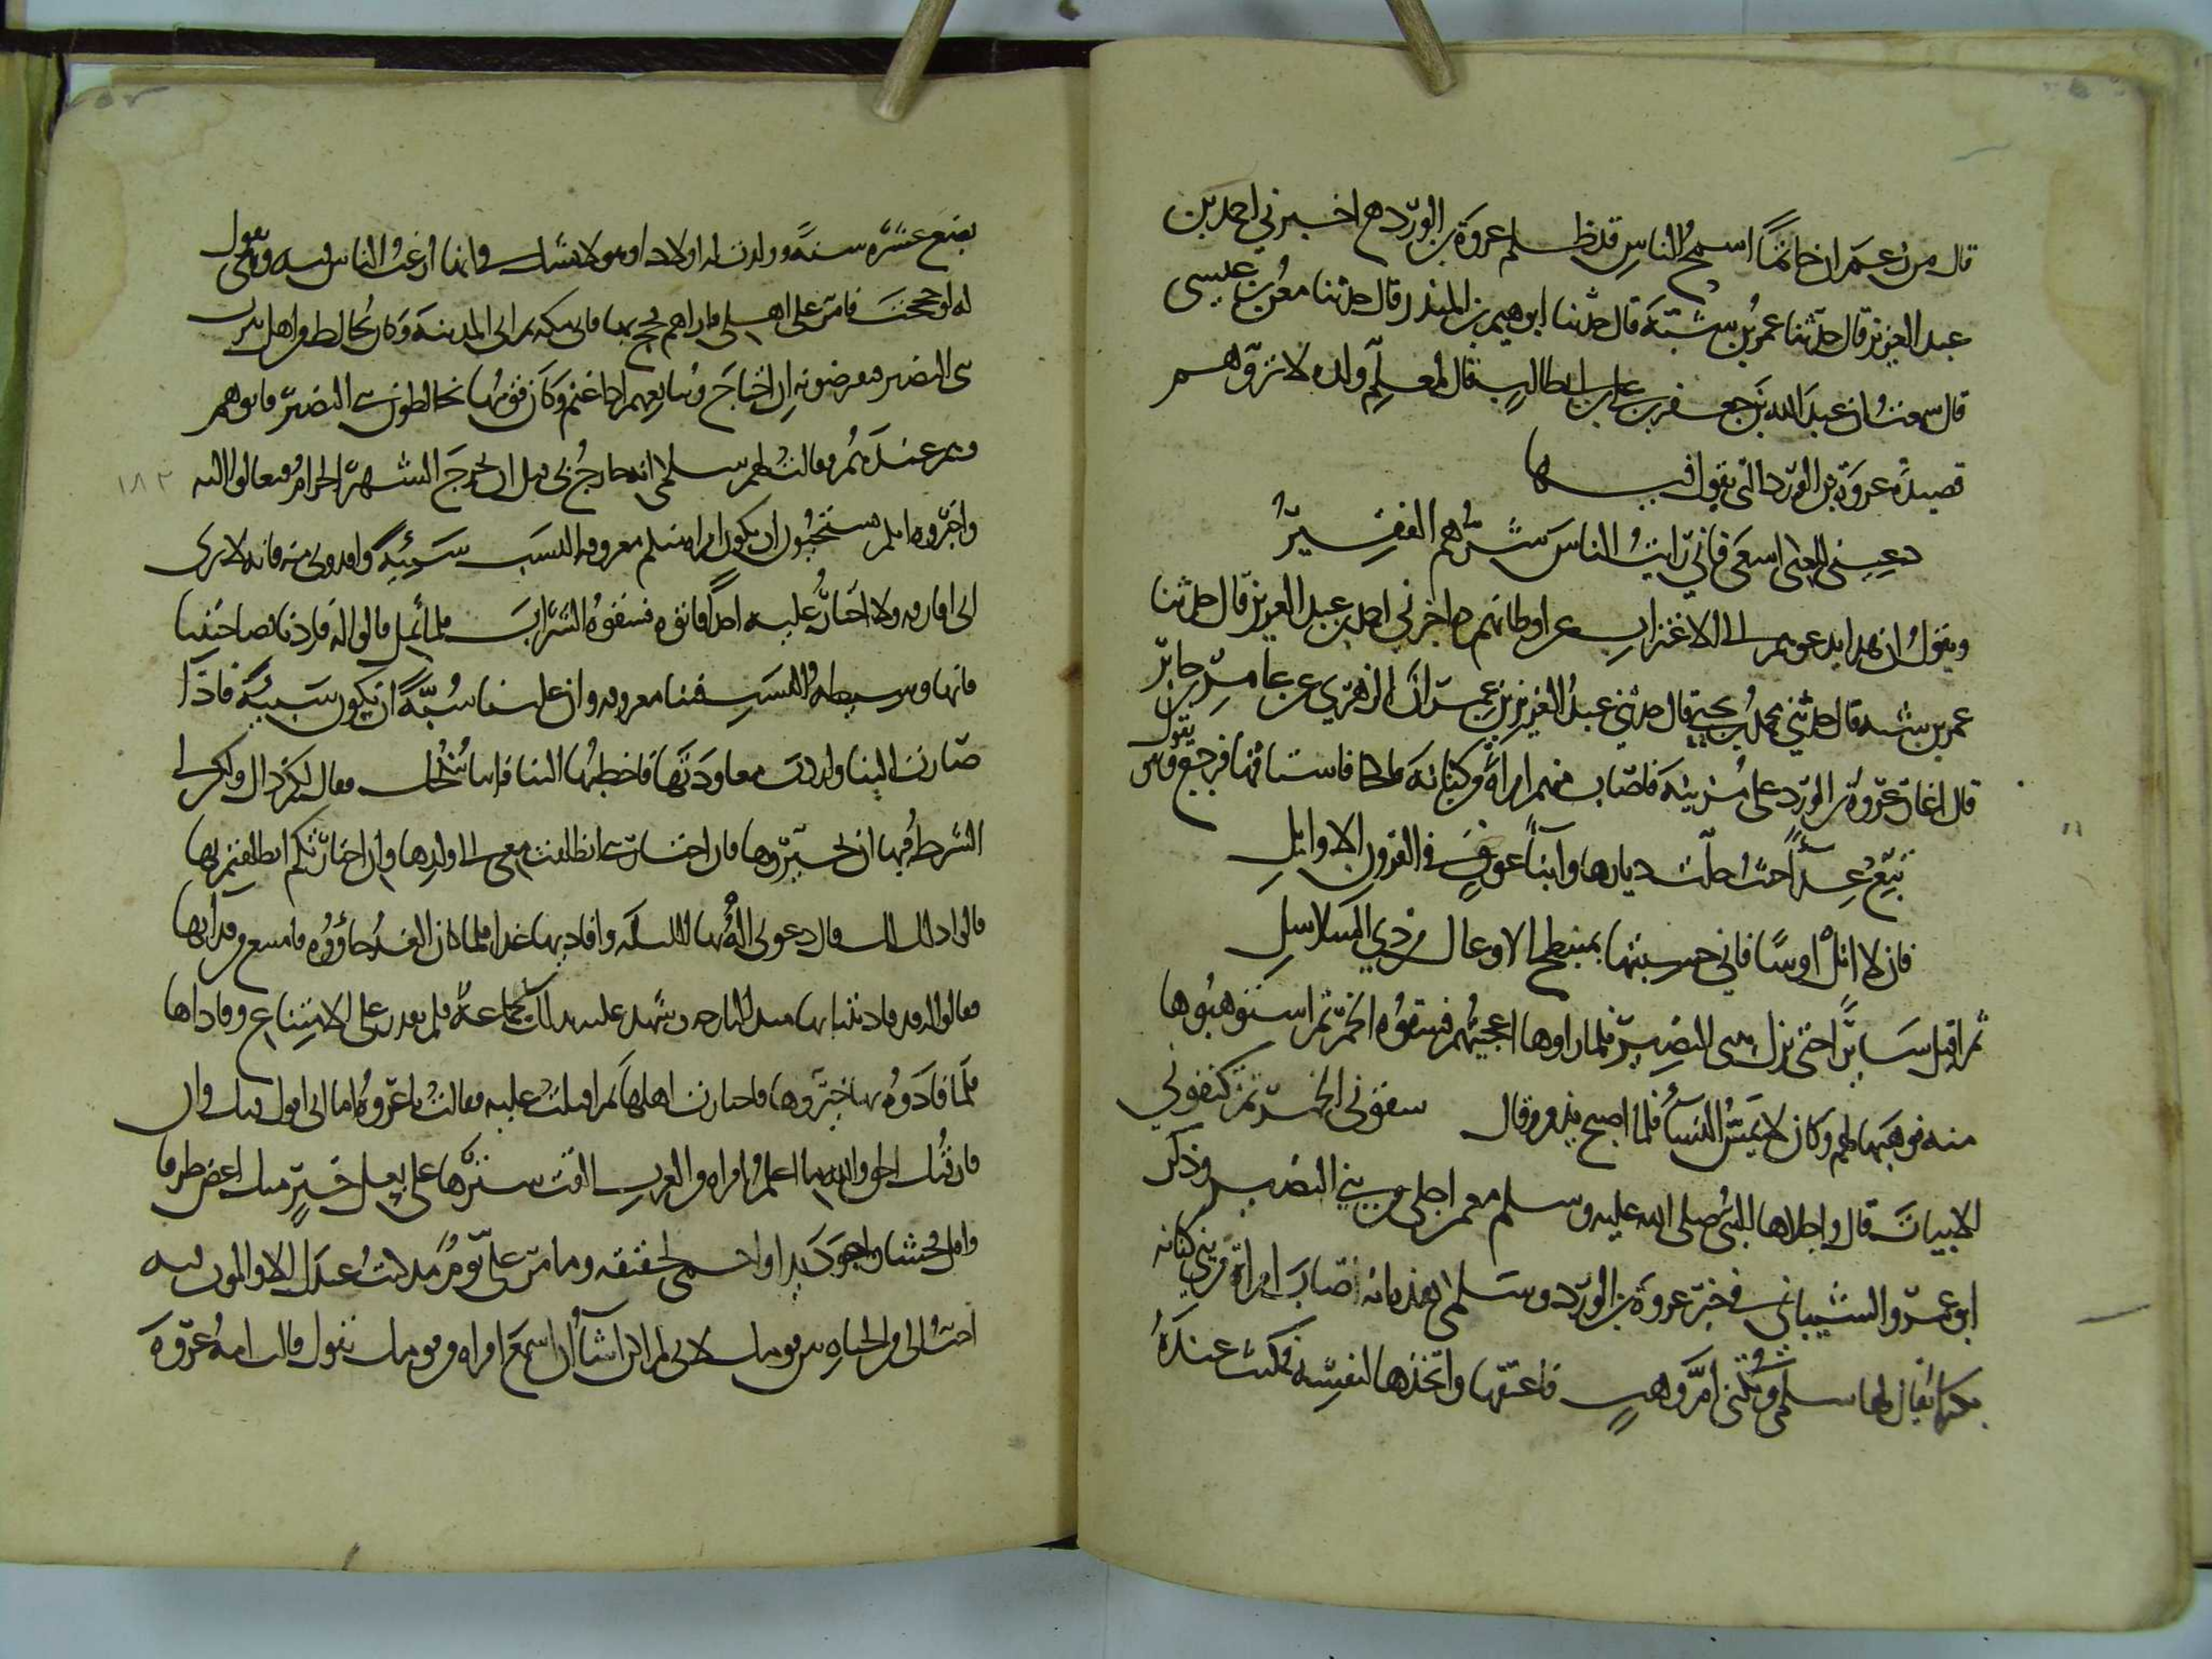 قال من زعم ان حاتمًا اسمح الناس قد ظلم عروة بن الورد ه اخبرني احمد بن
عبد العزيز قال حدثنا عمر بن شبّة قال حدثنا ابرهيم بن المنذر قال حدثنا معن بن عيسى
قال سمعت ان عبد الله بن جعفر بن ابي طالب قال لمعلم ولده لا تروهم
قصيدة عروة بن الورد التي يقول فيها
دعيني للغنى اسعى فاني رايت الناس شرهم الفقير
ويقول ان هذا يدعوهم الى الاغتراب عن اوطانهم ه اخبرني احمد بن عبد العزيز قال حدثنا
عمر بن شبه قال حدثني محمد بن يحيى قال حدثني عبد العزيز بن عمران الزهري عن عامر بن جابر
قال اغار عروة بن الورد على مزينة فاصاب منهم امراة من كنانة ناكحا فاستاقها فرجع وهو يقول
تبغ عداً حيث حلّت ديارها وابناء عوف في القرون الاوائل
فان لا انل اوسًا فاني حسبها بمنبطح الاوعال من ذي السلاسل
ثم اقبل سايرًا حتى نزل ببني النضير فلما راوها اعجبتهم فسقوه الخمر ثم استوهبوها
منه فوهبها لهم وكان لا يمس النساء فلما اصبح ندم وقال سقوني الخمر ثم تكنفوني
الابيات قال واجلاها النبي صلى الله عليه وسلم مع من اجلى من بني النضير وذكر
ابو عمرو الشيباني في خبر عروة بن الورد وسلمى هذه انه اصاب امراة من بني كنانة
بكرًا يقال لها سلمى وتكنى ام وهب فاعتقها واتخذها لنفسه فمكثت عنده
بضع عشرة سنة وولدت له اولادا وهو لا يشك في انها ارغب الناس فيه وهي تقول
له لو حججت فامر على اهلي فاراهم فحج بها فاتى مكة ثم اتى المدينة وكان يخالط من اهل يثرب
بني النضير فيقرضونه ان احتاج ويبايعهم اذا غنم وكان قومها يخالطون بني النضير فاتوهم
وهم عنده ثم فقالت لهم سلمى انه خارج بي قبل ان يخرج الشهر الحرام فتعالوا اليه
واخبروه انكم تستحيون ان تكون امراة منكم معروفة النسب سبيّة وافدوني منه فانه لا يرى
اني افارقه ولا اختار عليه احدًا فاتوه فسقوه الشراب فلما ثمل قالوا له فادنا بصاحبتنا
فانها وسيطة النسب فينا معروفه وان علينا سُبّةً ان تكون سبيّة فاذا
صارت الينا واردت معاودتها فاخطبها الينا فاننا ننكحك فقال لهم ذاك لكم ولكن لي
الشرط فيها ان تخيّروها فان اختارتني انطلقت معي الى ولدها وان اختارتكم انطلقتم بها
قالوا ذلك لك قال دعوني اله بها الليلة وافاديها غدا فلما كان الغد جاؤوه فامتنع من فدائها
فقالوا له قد فاديتنا بها منذ البارحه وشهد عليه بذلك جماعة فلم يقدر على الامتناع وفاداها
فلما فادوه بها خيّروها فاختارت اهلها ثم اقبلت عليه فقالت يا عروة اما اني اقول فيك وان
فارقتك الحق والله ما اعلم امراة من العرب القت سترها على بعل خير منك اغض طرفا
واقل فحشا واجود يدا واحمى لحقيقة وما مرّ علي يوم مذ كنت عندك الا والموت فيه
احب الي من الحياة بين قومك لاني لم اكن اشاء ان اسمع امراة من قومك تقول قالت امة عروة
١٨٢